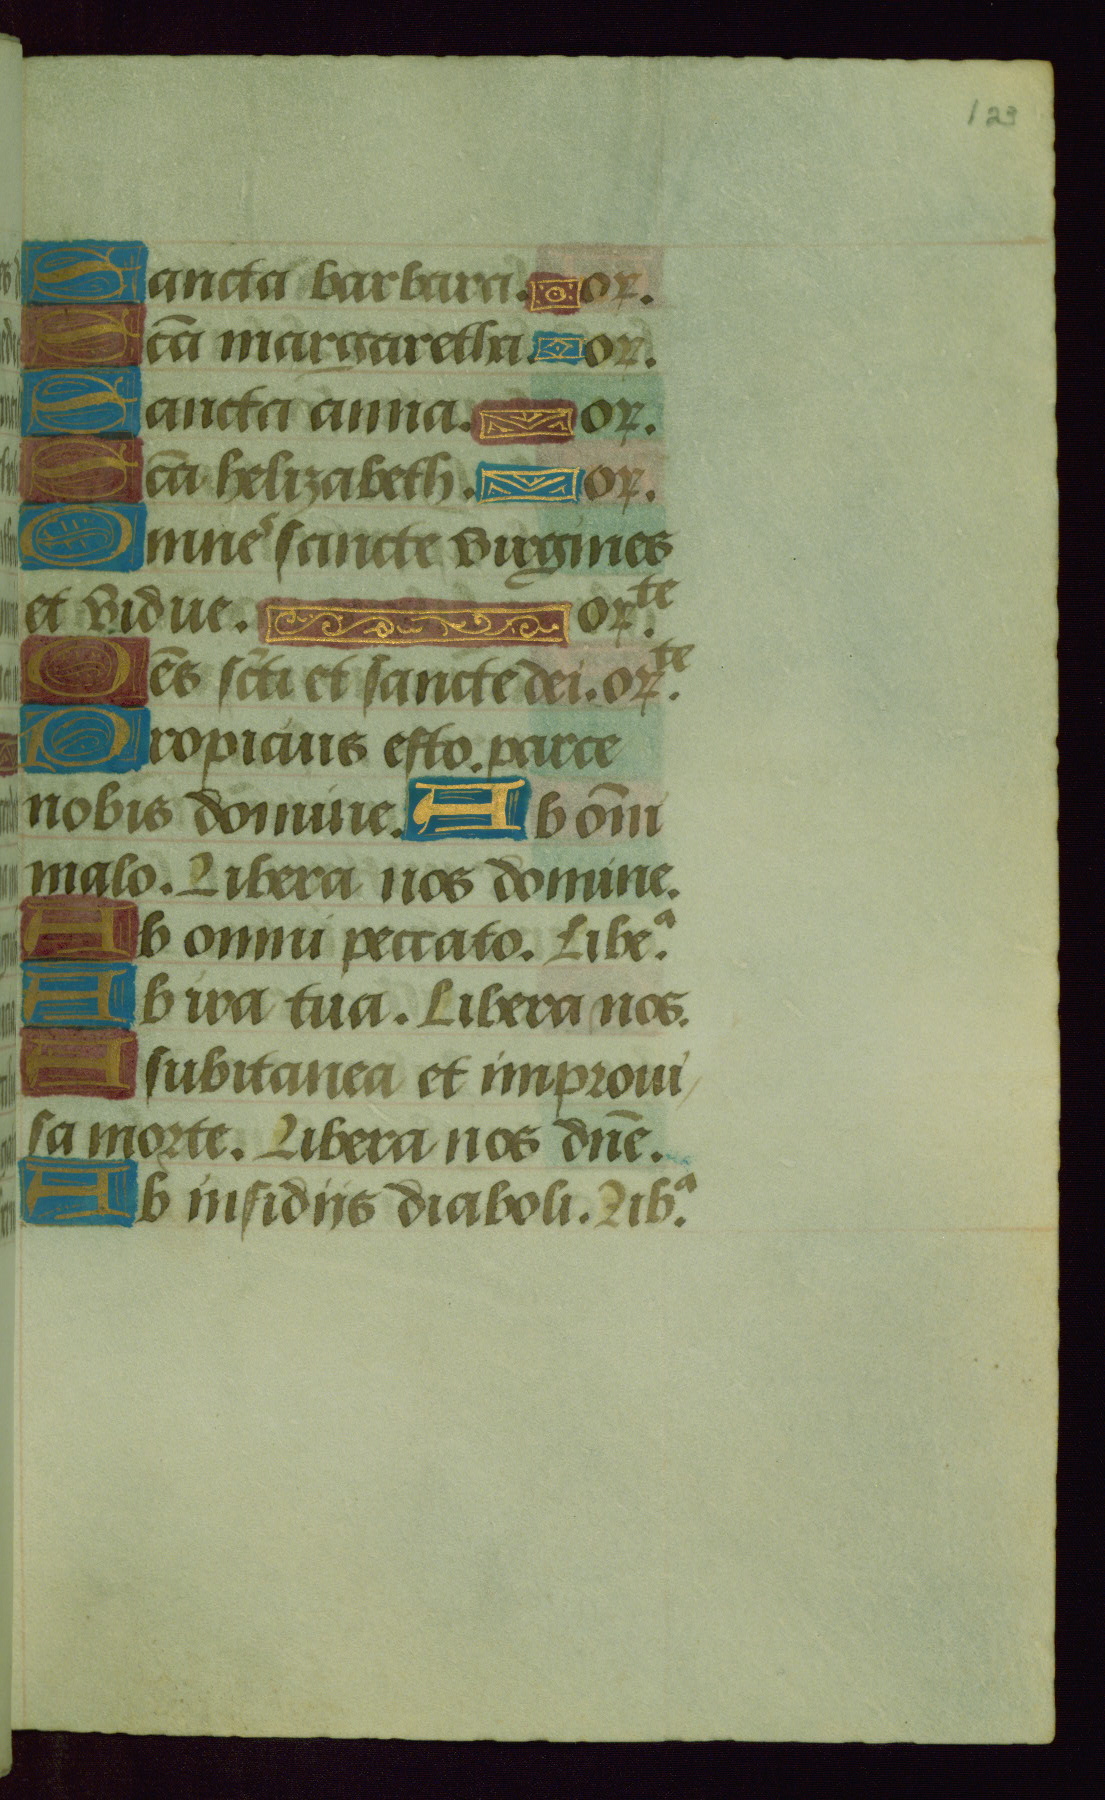 123
Sancta barbara. or.
Sc̄a margaretha. or.
Sancta anna. or.
Sc̄a helizabeth. or.
Omnes sancte virgines
et vidue. or.te
Oēs sc̄ti et sancte dei. or.te
Propicius esto. parce
nobis domine. Ab om̄i
malo. Libera nos domine.
Ab omni peccato. Libe.a
Ab ira tua. Libera nos.
A subitanea et improui
sa morte. Libera nos dn̄e.
Ab insidijs diaboli. Lib.a